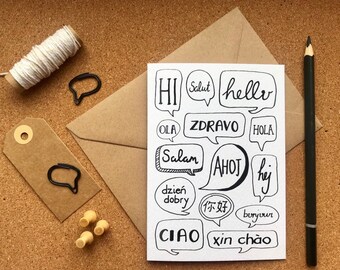 HI
Salut
hello
OLA
ZDRAVO
HOLA
Salam
AHOJ
hej
dzień
dobry
你好
bonjour
CIAO
xin chào